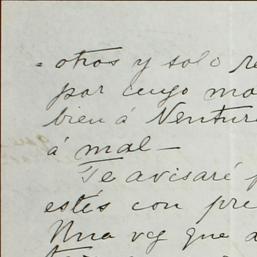 otros y solo re
por cuyo mo
bien á Ventur
á mal —
Te avisaré p
estés con pre
Una vez que a